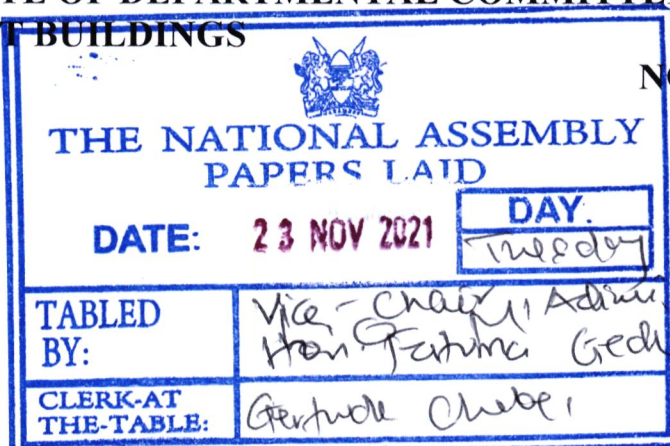 DEPARTMENTAL COMMITTEE
BUILDINGS
THE NATIONAL ASSEMBLY
PAPERS LAID
DATE: 23 NOV 2021
DAY.
Tuesday
TABLED BY:
Vice-Chair, Admi
Hon Fatuma Gedi
CLERK-AT THE-TABLE:
Gertrude Chebe